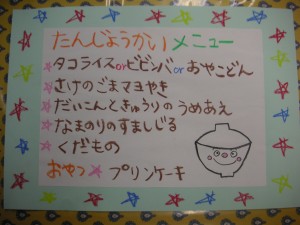 たんじょうかいメニュー
タコライスorビビンバorおやこどん
さけのごまマヨやき
だいこんときゅうりのうめあえ
なまのりのすましじる
くだもの
おやつ プリンケーキ